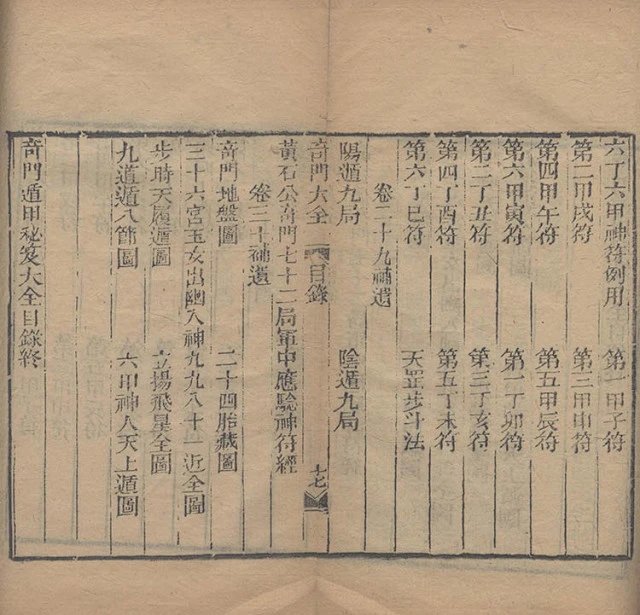 六丁六甲神符例用　第一甲子符
第二甲戌符　第三甲申符
第四甲午符　第五甲辰符
第六甲寅符　第一丁卯符
第二丁丑符　第三丁亥符
第四丁酉符　第五丁未符
第六丁巳符　天罡步斗法
卷二十九補遺
陽遁九局　陰遁九局
奇門大全　目錄　十七
黃石公奇門七十二局軍中應驗神符經
卷三十補遺
奇門地盤圖　二十四胎藏圖
三十六宮玉女出幽入神九九八十一近全圖
步時天履遁圖　立揚飛星全圖
九道遁八節圖　六甲神人天上遁圖
奇門遁甲秘笈大全目錄終